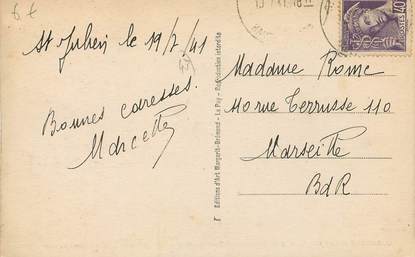 6 €
St Julien le 19/7/41
Bonnes caresses.
Marcelle
Editions d'Art Margerit-Brémond - Le Puy - Reproduction interdite
Madame Romc
40 rue Terrusse 110
Marseille
BdR
POSTES 40